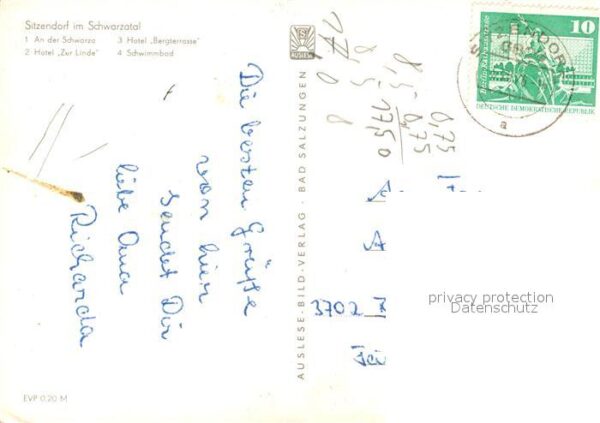 Sitzendorf im Schwarzatal
1 An der Schwarza
2 Hotel „Zur Linde"
3 Hotel „Bergterrasse"
4 Schwimmbad
Die besten Grüße
von hier
sendet Dir
liebe Oma
Richarda
AUSLESE-BILD-VERLAG · BAD SALZUNGEN
8,5
0,75
17,50
0,75
10
DEUTSCHE DEMOKRATISCHE REPUBLIK
a
3702
privacy protection
Datenschutz
EVP 0,20 M